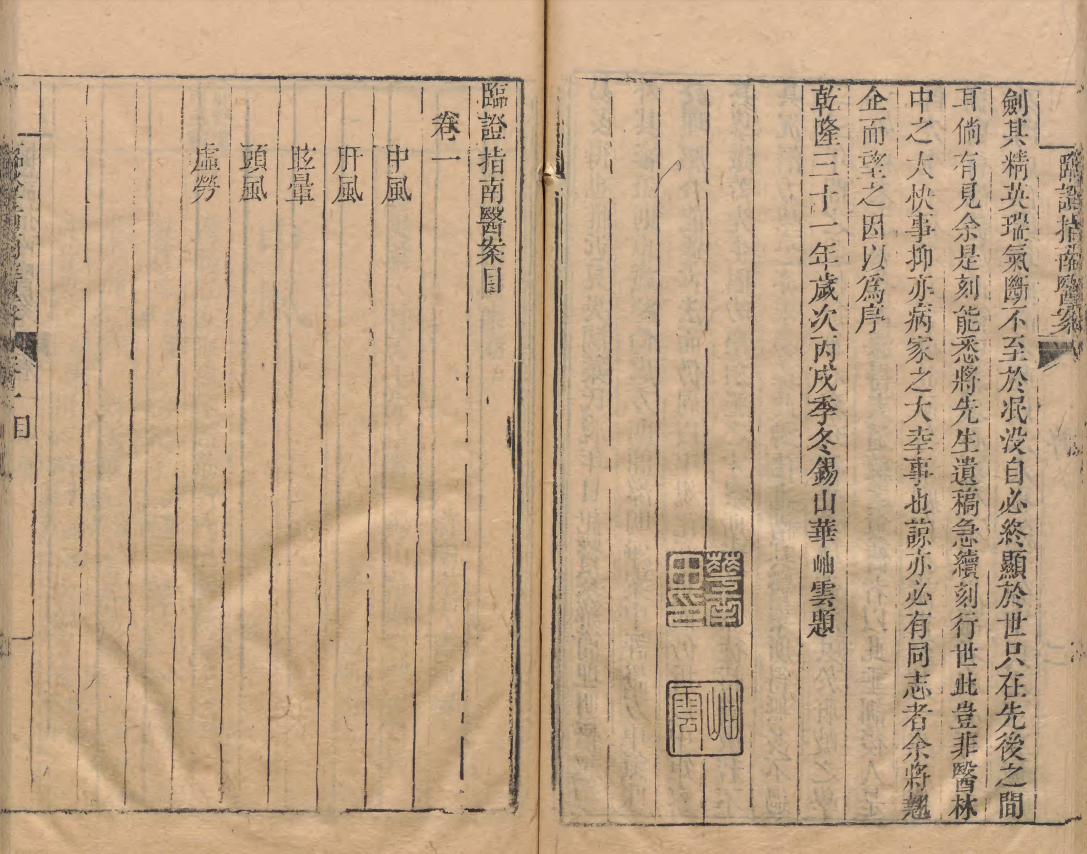 臨證指南醫案
劍其精英瑞氣斷不至於泯没自必終顯於世只在先後之間
耳倘有見余是刻能悉將先生遺稿急續刻行世此豈非醫林
中之大快事抑亦病家之大幸事也諒亦必有同志者余將翹
企而望之因以爲序
乾隆三十一年歲次丙戌季冬錫山華岫雲題
岫雲
臨證指南醫案目
卷一
中風
肝風
眩暈
頭風
虛勞
卷一目